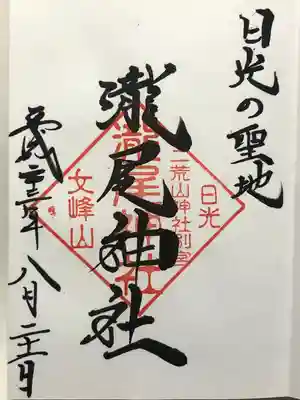 日光の聖地
日光
二荒山神社別宮
瀧尾神社
瀧尾神社
女峰山
平成二十三年八月二十二日